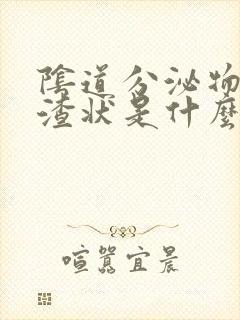 陰道分泌物
渣状是什麽
喧嚣宜晨